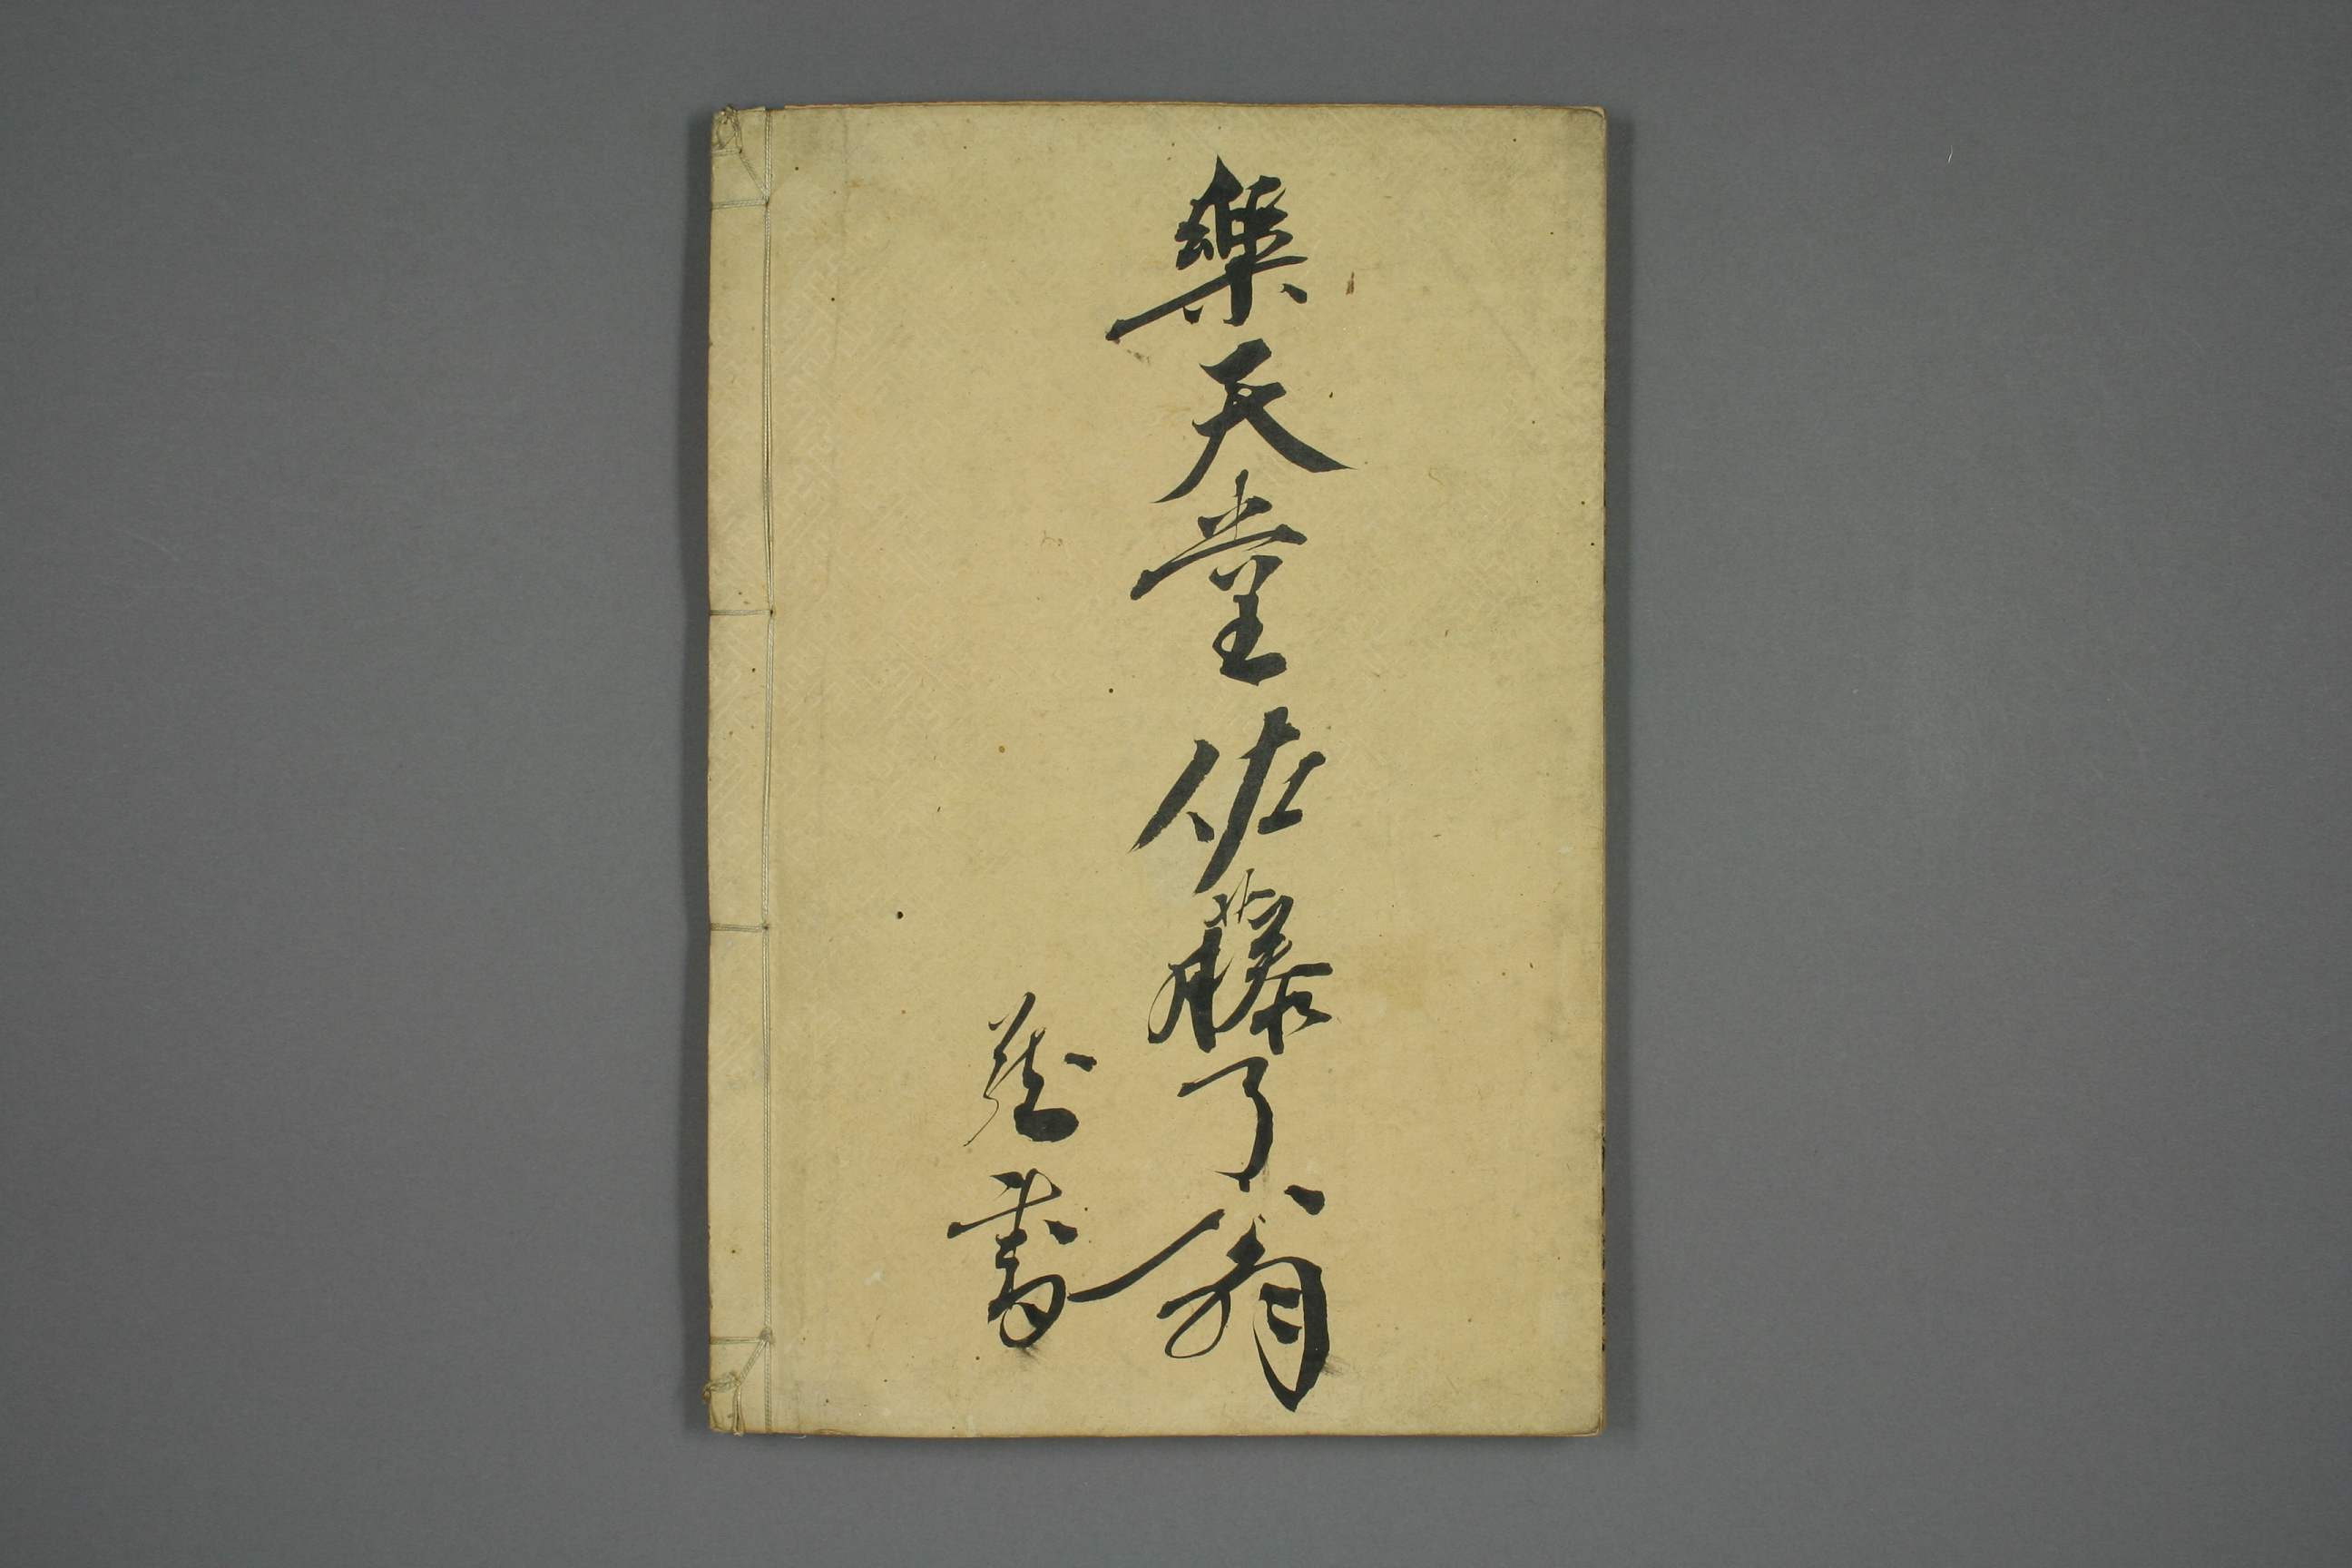 樂天堂佐藤了翁
藏書